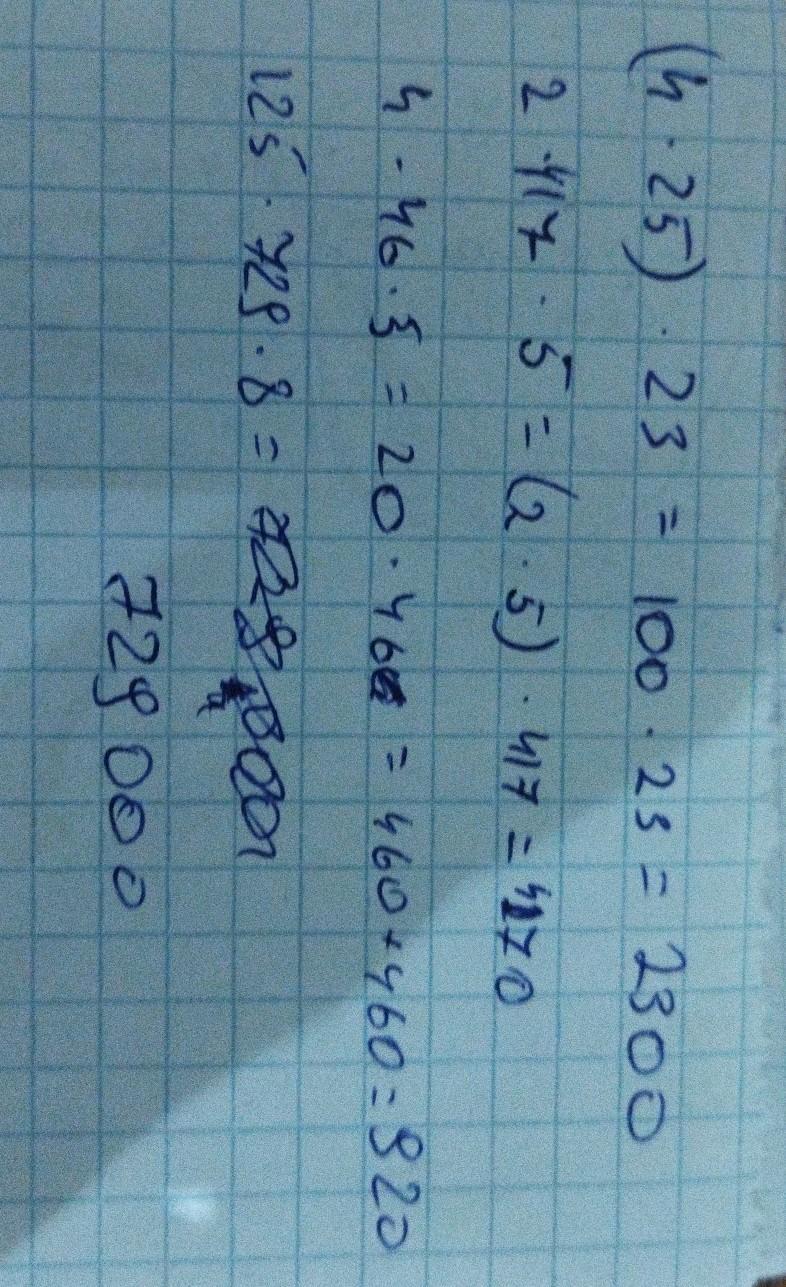 (4 · 25) · 23 = 100 · 23 = 2300
2 · 417 · 5 = (2 · 5) · 417 = 4170
4 · 46 · 5 = 20 · 46 = 460 + 460 = 920
125 · 729 · 8 =
729000